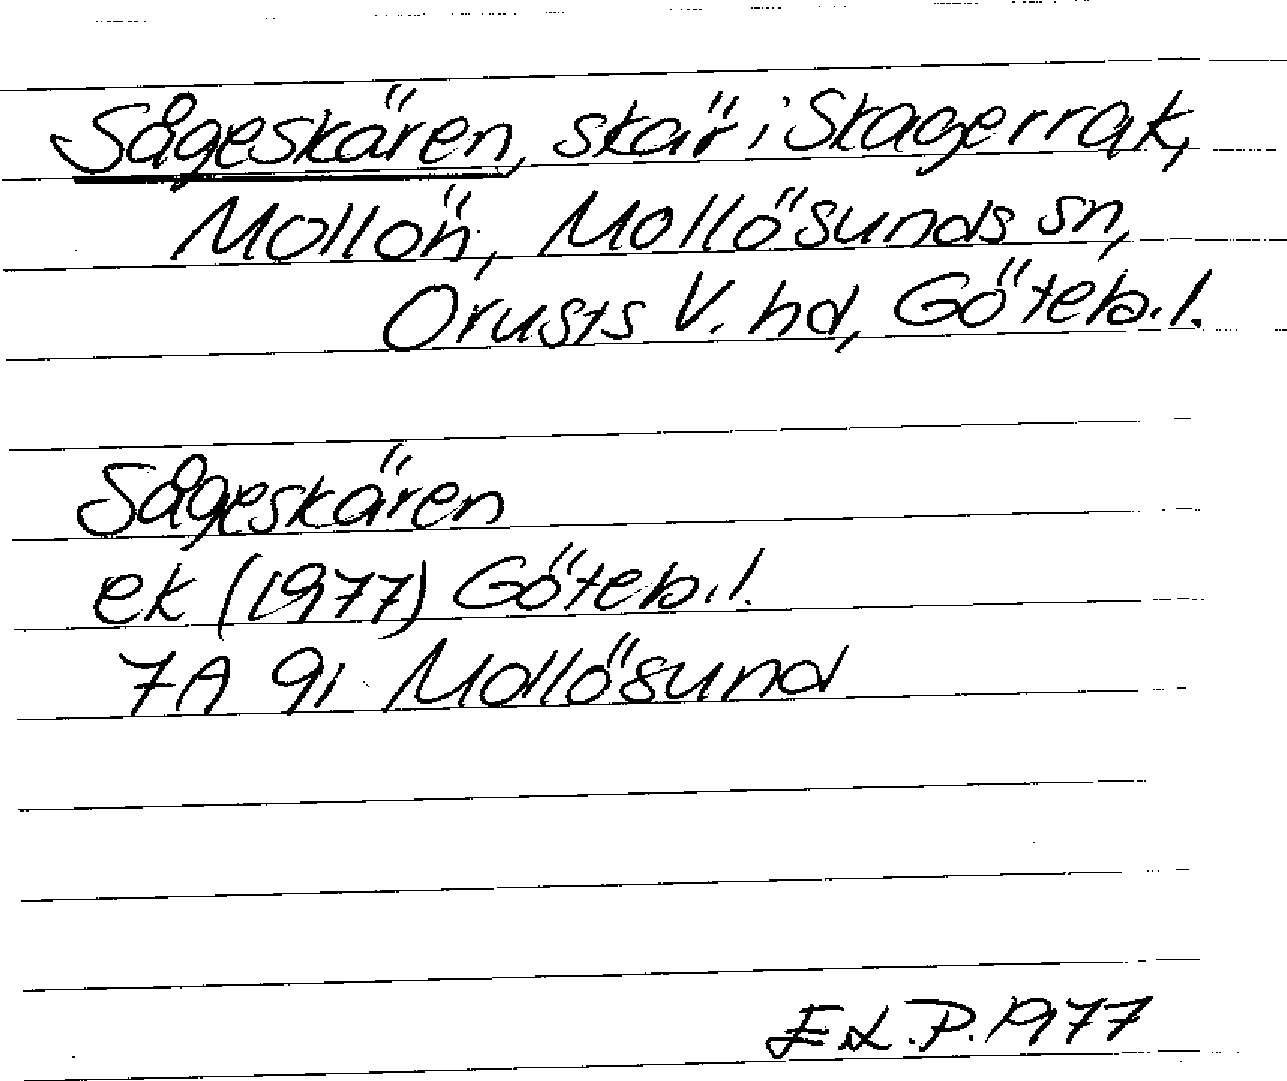 Sågeskären, skär i Skagerrak,
Mollön, Mollösunds sn,
Orusts V. hd, Göteb. l.
Sågeskären
ek (1977) Göteb. l.
7A 9i Mollösund
E.L.P. 1977